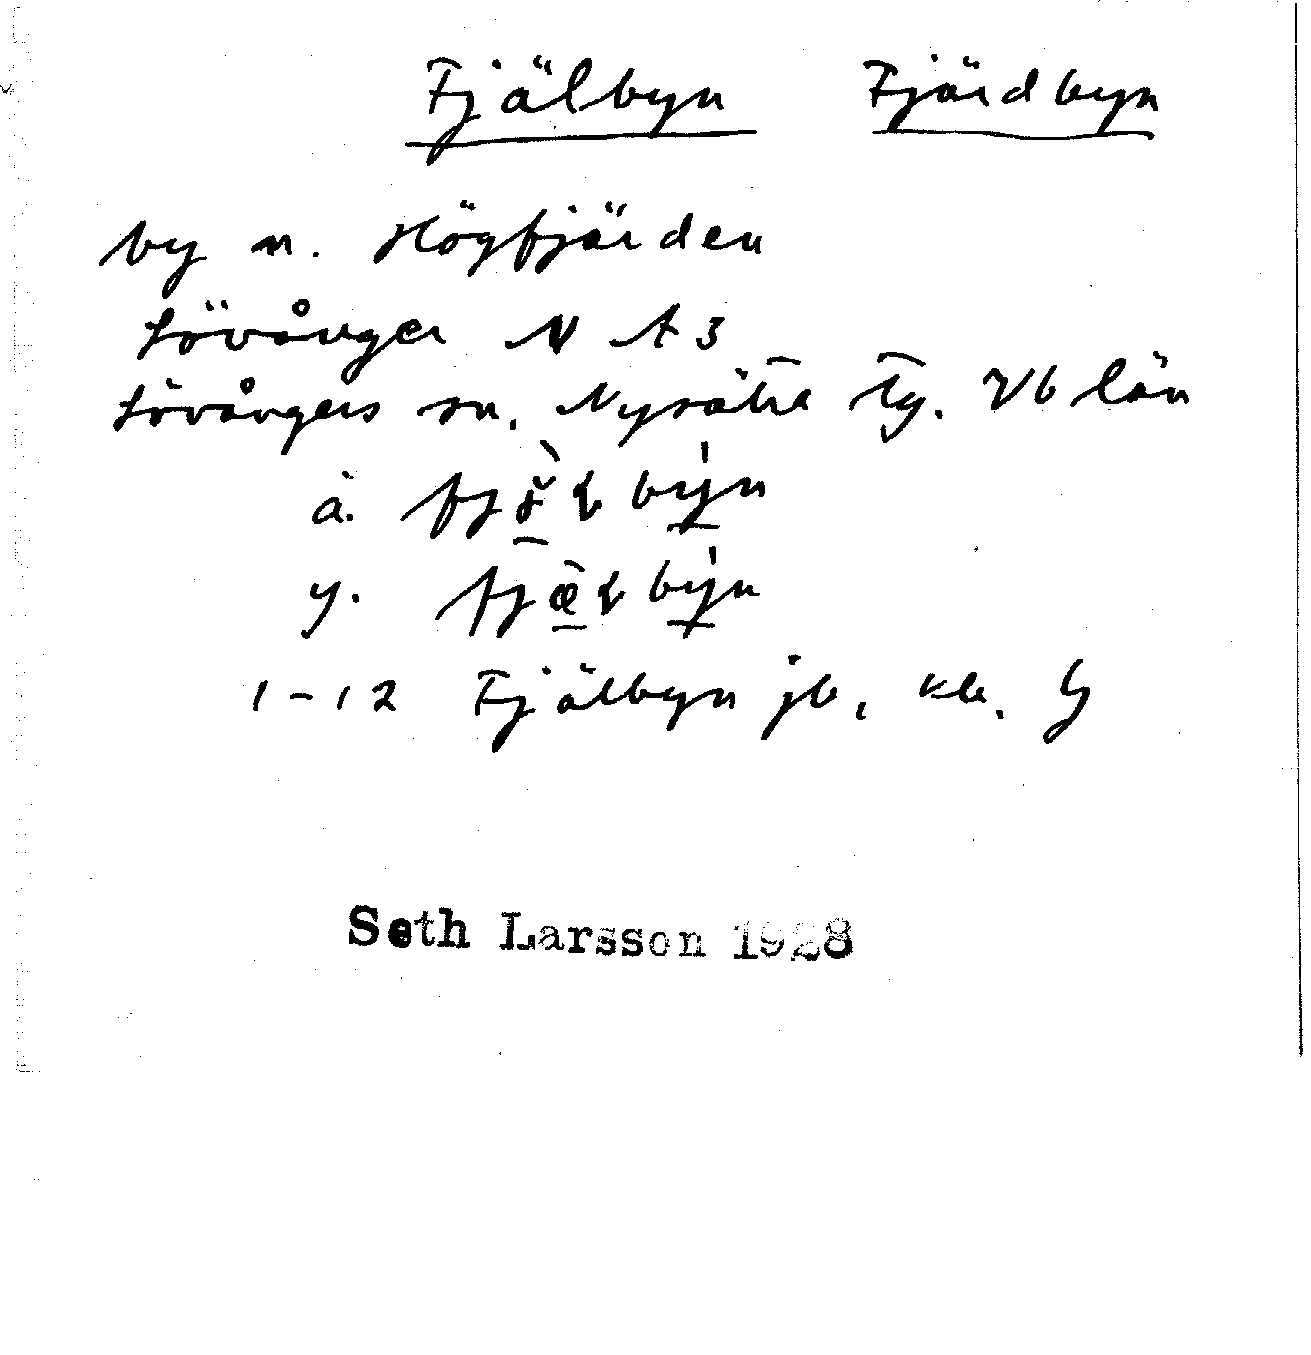 Fjälbyn Fjärdbyn
by n. Högfjärden
Lövånger N A 3
Lövångers sn. Nysätra tg. Vb län
ä.
y.
1-12 Fjälbyn jb, kb. G
Seth Larsson 1928